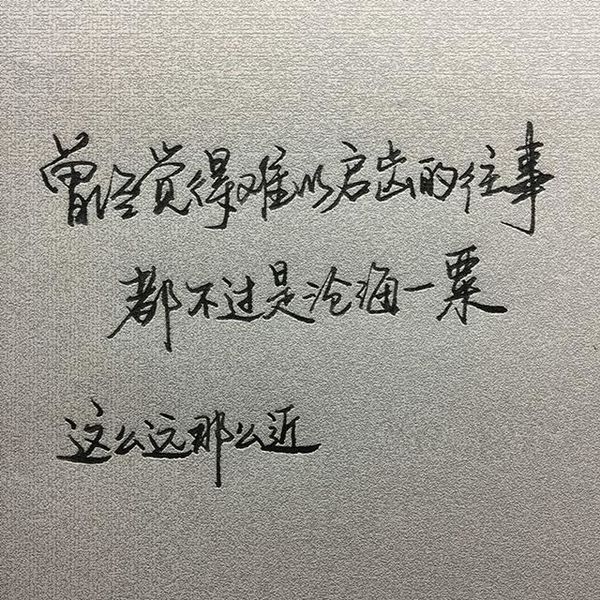 曾经觉得难以启齿的往事
都不过是沧海一粟
这么远那么近